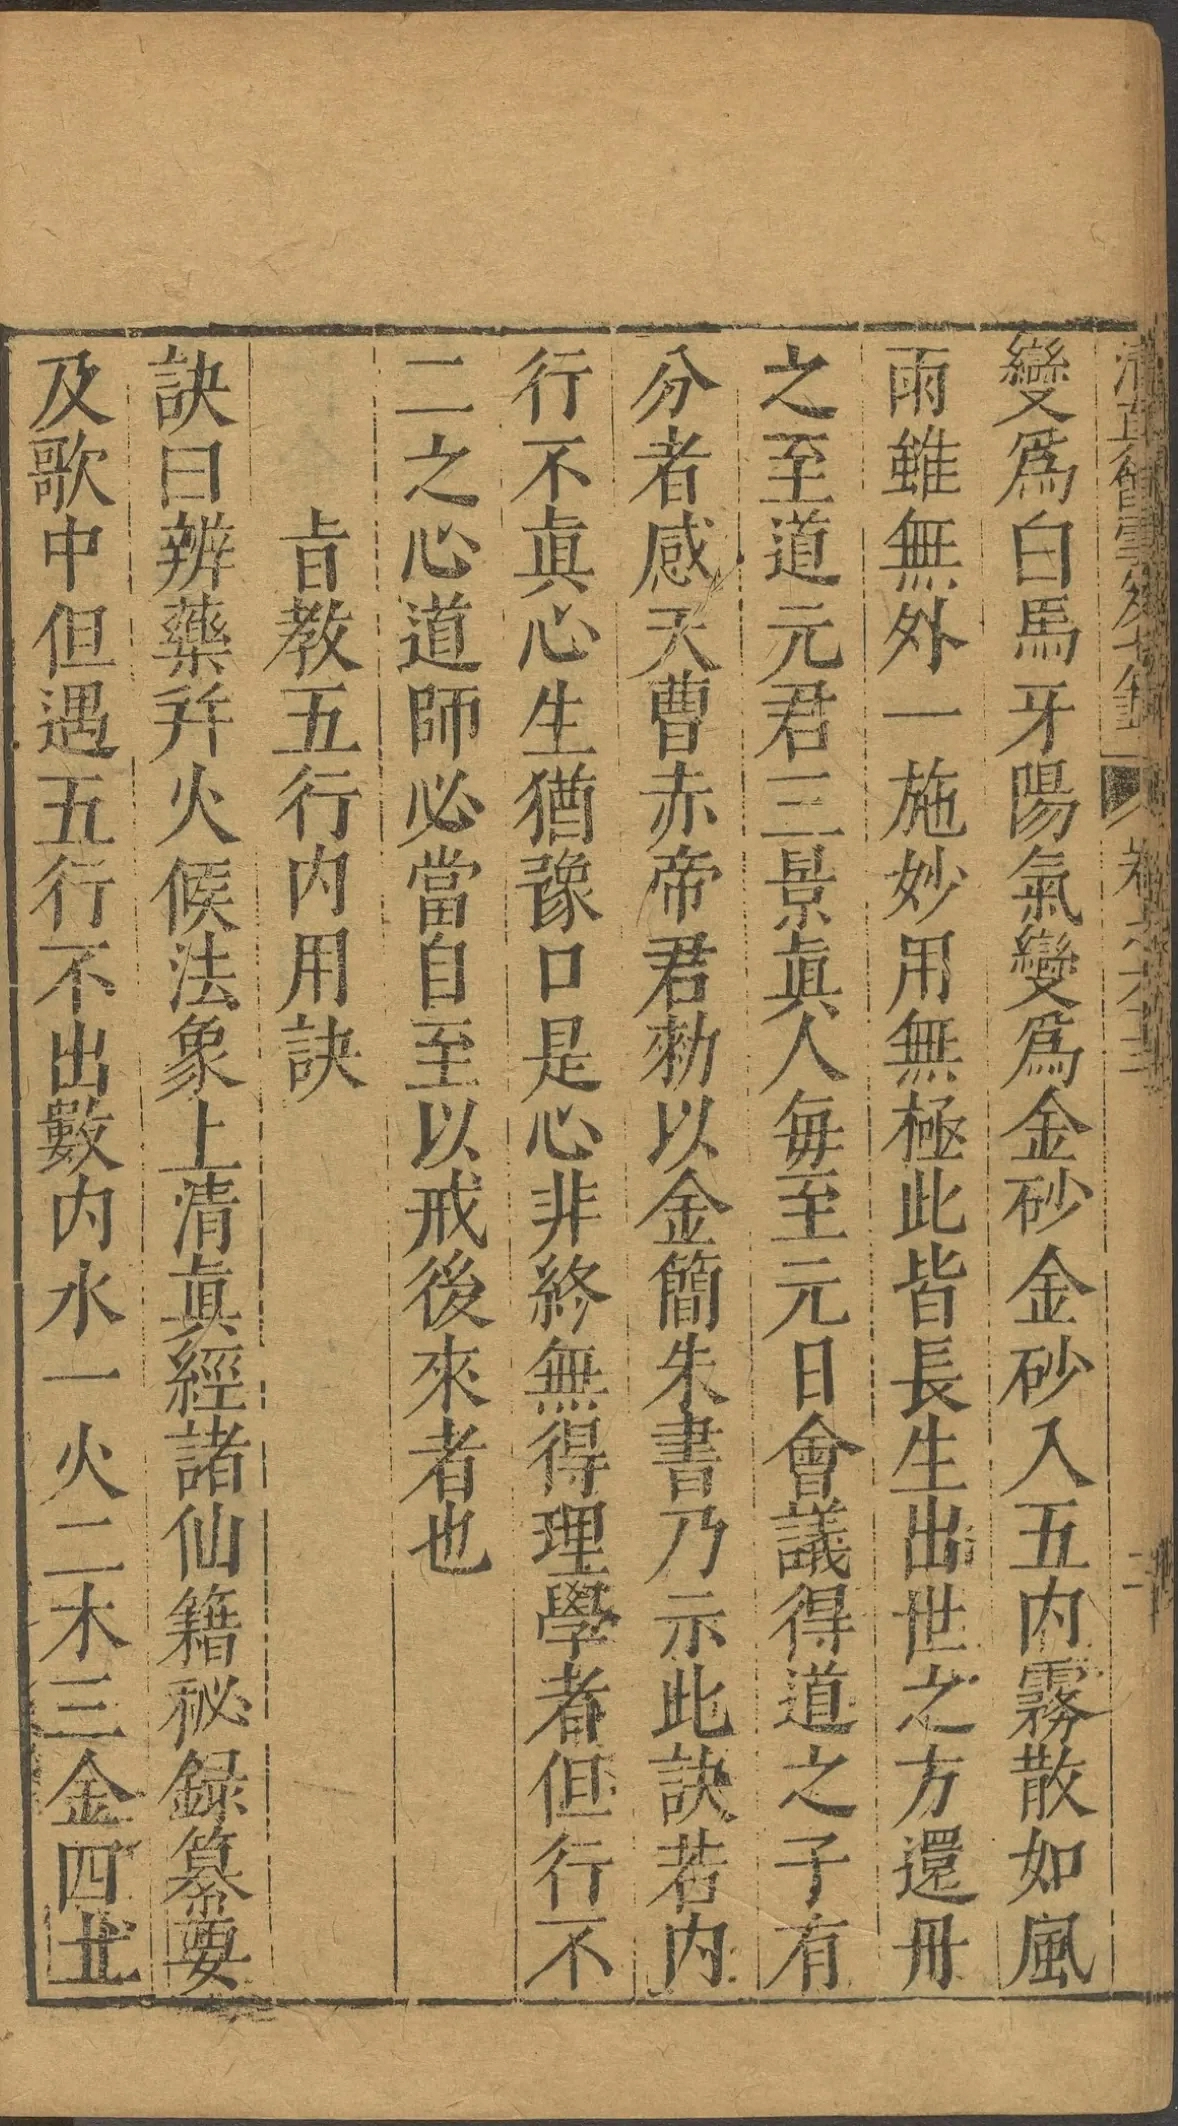 變爲白馬牙陽氣變爲金砂金砂入五内霧散如風
雨雖無外一施妙用無極此皆長生出世之方還丹
之至道元君三景眞人毎至元日會議得道之子有
分者感天曹赤帝君勑以金簡朱書乃示此訣若内
行不眞心生猶豫口是心非終無得理學者但行不
二之心道師必當自至以戒後來者也
旨教五行内用訣
訣曰辨藥并火候法象上清眞經諸仙籍秘録纂要
及歌中但遇五行不出數内水一火二木三金四土